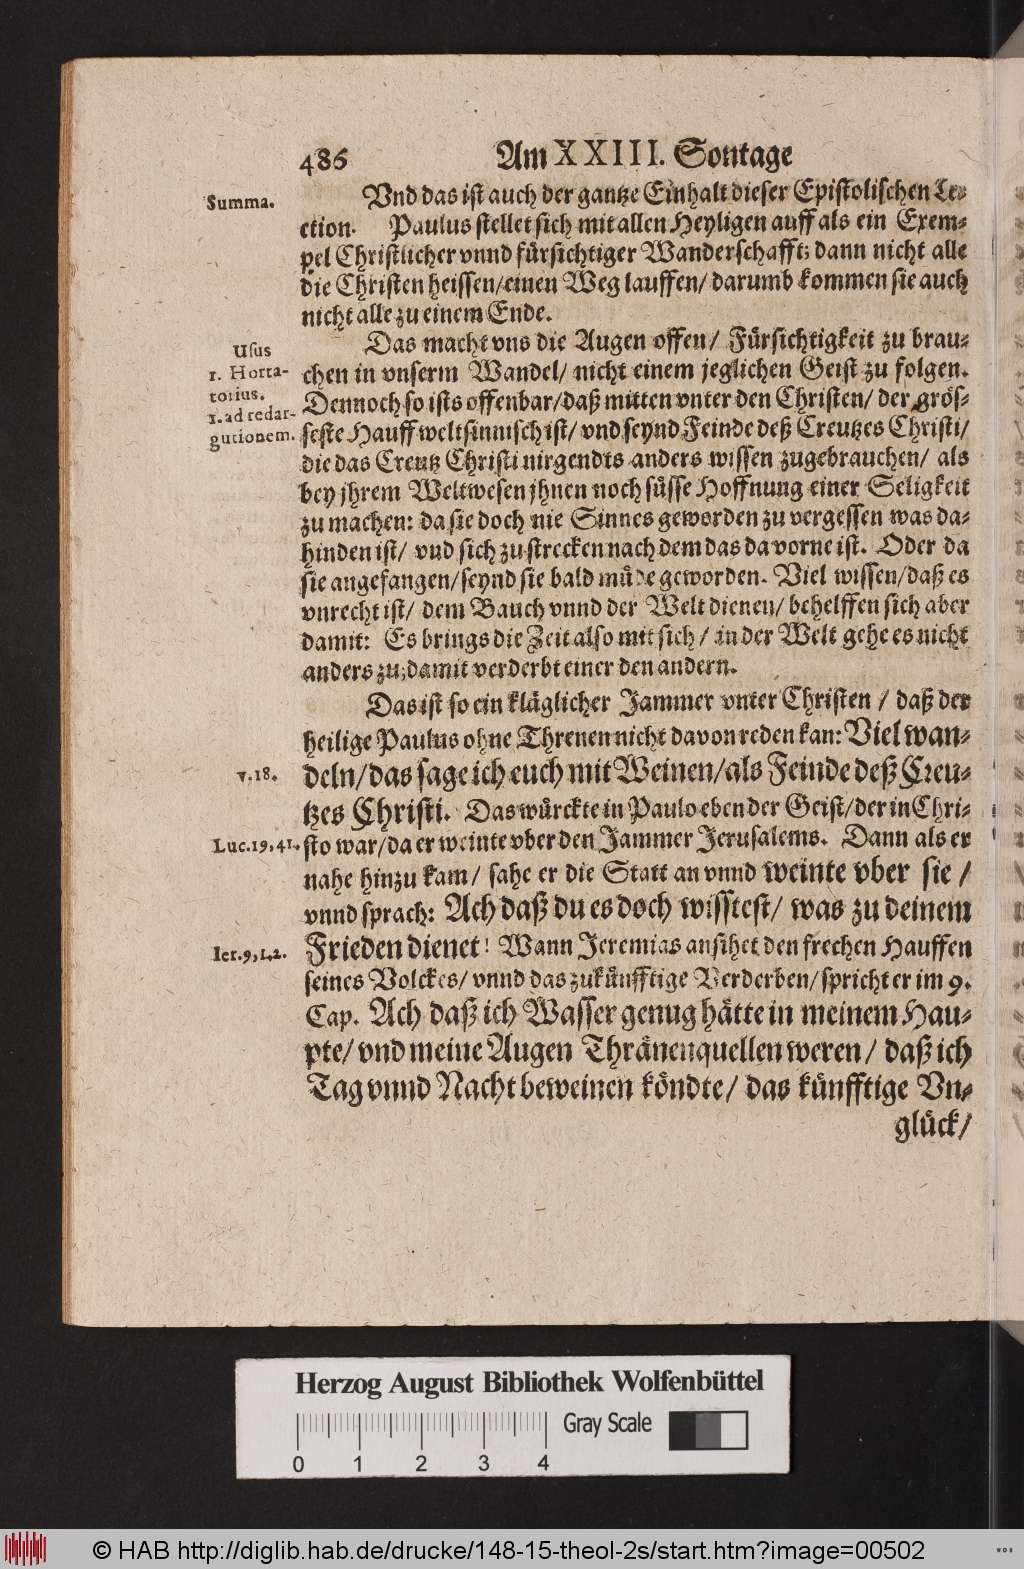 486 Am XXIII. Sontage
Summa.
Vnd das ist auch der gantze Einhalt dieser Epistolischen Le-
ction. Paulus stellet sich mit allen Heyligen auff als ein Exem-
pel Christlicher vnnd fürsichtiger Wanderschafft; dann nicht alle
die Christen heissen/ einen Weg lauffen/ darumb kommen sie auch
nicht alle zu einem Ende.
Usus
1. Horta-
torius.
1. ad redar-
gutionem.
Das macht vns die Augen offen/ Fürsichtigkeit zu brau-
chen in vnserm Wandel/ nicht einem jeglichen Geist zu folgen.
Dennoch so ists offenbar/ daß mitten vnter den Christen/ der grös-
seste Hauff weltsinnisch ist/ vnd seynd Feinde deß Creutzes Christi/
die das Creutz Christi nirgendts anders wissen zugebrauchen/ als
bey jhrem Weltwesen jhnen noch süsse Hoffnung einer Seligkeit
zu machen: da sie doch nie Sinnes geworden zu vergessen was da-
hinden ist/ vnd sich zu strecken nach dem das da vorne ist. Oder da
sie angefangen/ seynd sie bald müde geworden. Viel wissen/ daß es
vnrecht ist/ dem Bauch vnnd der Welt dienen/ behelffen sich aber
damit: Es brings die Zeit also mit sich/ in der Welt gehe es nicht
anders zu; damit verderbt einer den andern.
Das ist so ein kläglicher Jammer vnter Christen/ daß der
heilige Paulus ohne Threnen nicht davon reden kan: Viel wan-
v. 18.
deln/ das sage ich euch mit Weinen/ als Feinde deß Creu-
tzes Christi. Das würckte in Paulo eben der Geist/ der in Chri-
Luc. 19, 41.
sto war/ da er weinte vber den Jammer Jerusalems. Dann als er
nahe hinzu kam/ sahe er die Statt an vnnd weinte vber sie/
vnnd sprach: Ach daß du es doch wisstest/ was zu deinem
Ier. 9, 1.2.
Frieden dienet! Wann Jeremias ansihet den frechen Hauffen
seines Volckes/ vnnd das zukünfftige Verderben/ spricht er im 9.
Cap. Ach daß ich Wasser genug hätte in meinem Hau-
pte/ vnd meine Augen Thränenquellen weren/ daß ich
Tag vnnd Nacht beweinen köndte/ das künfftige Vn-
glück/
Herzog August Bibliothek Wolfenbüttel
Gray Scale
0 1 2 3 4
© HAB http://diglib.hab.de/drucke/148-15-theol-2s/start.htm?image=00502